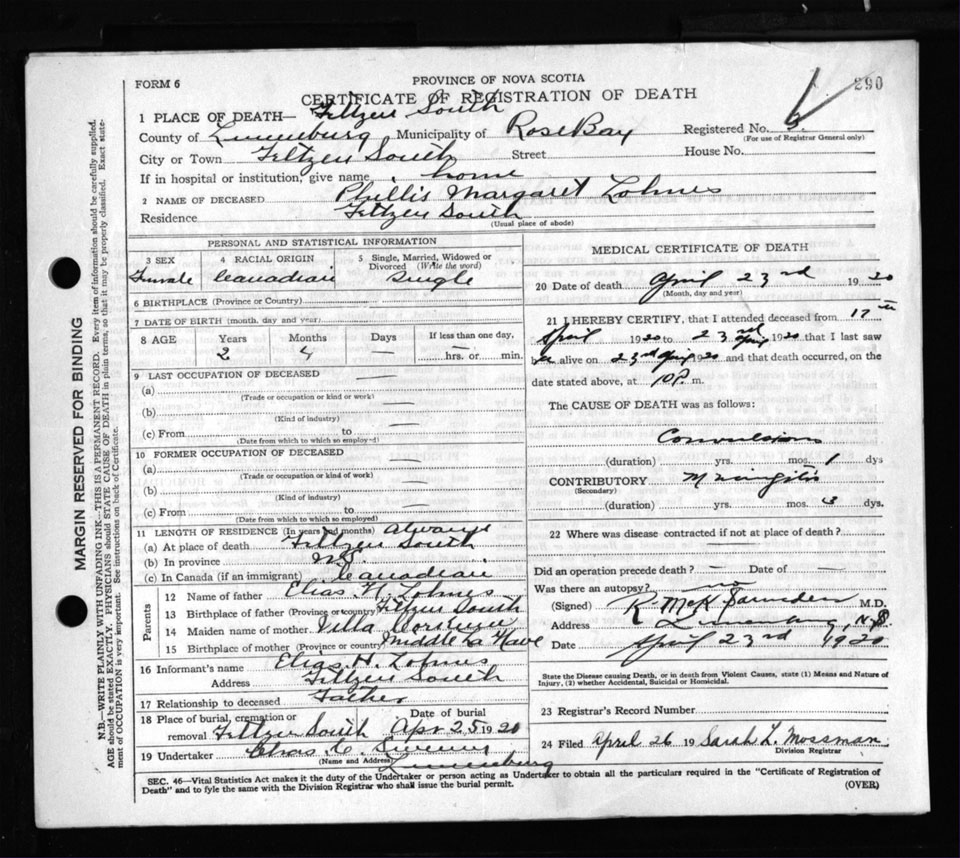 FORM 6
PROVINCE OF NOVA SCOTIA
290
CERTIFICATE OF REGISTRATION OF DEATH
1 PLACE OF DEATH— Feltzen South
County of Lunenburg, Municipality of Rose Bay Registered No. 5.
(For use of Registrar General only)
City or Town Feltzen South Street House No.
If in hospital or institution, give name home
2 NAME OF DECEASED Phillis Margaret Lohnes
Residence Feltzen South
(Usual place of abode)
PERSONAL AND STATISTICAL INFORMATION
3 SEX Female
4 RACIAL ORIGIN Canadian
5 Single, Married, Widowed or Divorced (Write the word) Single
6 BIRTHPLACE (Province or Country)
7 DATE OF BIRTH (month, day and year)
8 AGE Years 2 Months 4 Days — If less than one day, — hrs. or min.
9 LAST OCCUPATION OF DECEASED —
(a)
(Trade or occupation or kind or work)
(b) —
(Kind of industry)
(c) From to —
(Date from which to which so employed)
10 FORMER OCCUPATION OF DECEASED
(a) —
(Trade or occupation or kind of work)
(b) —
(Kind of industry)
(c) From to —
(Date from which to which so employed)
11 LENGTH OF RESIDENCE (In years and months) always
(a) At place of death Feltzen South
(b) In province N.S.
(c) In Canada (if an immigrant) Canadian
Parents
12 Name of father Elias H. Lohnes
13 Birthplace of father (Province or country) Feltzen South
14 Maiden name of mother Villa
15 Birthplace of mother (Province or country) Middle La Have
16 Informant's name Elias H. Lohnes
Address Feltzen South
17 Relationship to deceased Father
18 Place of burial, cremation or removal Feltzen South Date of burial Apr 25 1920
19 Undertaker Chas
(Name and Address) Lunenburg
MEDICAL CERTIFICATE OF DEATH
20 Date of death April 23rd 1920
(Month, day and year)
21 I HEREBY CERTIFY, that I attended deceased from 17th
April 1920 to 23rd April 1920 that I last saw
alive on 23rd April 1920 and that death occurred, on the
date stated above, at 10 P. m.
The CAUSE OF DEATH was as follows:
Convulsions
(duration) yrs. mos. 1 dys
CONTRIBUTORY Meningitis
(Secondary)
(duration) yrs. mos. 3 dys.
22 Where was disease contracted if not at place of death?
—
Did an operation precede death? — Date of —
Was there an autopsy? no
(Signed) R McK Saunders M.D.
Address Lunenburg, N.S.
Date April 23rd 1920
State the Disease causing Death, or in death from Violent Causes, state (1) Means and Nature of
Injury, (2) whether Accidental, Suicidal or Homicidal.
23 Registrar's Record Number
24 Filed April 26 19 Sarah L. Mossman
Division Registrar
SEC. 46—Vital Statistics Act makes it the duty of the Undertaker or person acting as Undertaker to obtain all the particulars required in the "Certificate of Registration of
Death" and to fyle the same with the Division Registrar who shall issue the burial permit.
(OVER)
MARGIN RESERVED FOR BINDING
N.B.—WRITE PLAINLY WITH UNFADING INK—THIS IS A PERMANENT RECORD. Every item of information should be carefully supplied.
AGE should be stated EXACTLY. PHYSICIANS should STATE CAUSE OF DEATH in plain terms, so that it may be properly classified. Exact state-
ment of OCCUPATION is very important. See instructions on back of Certificate.